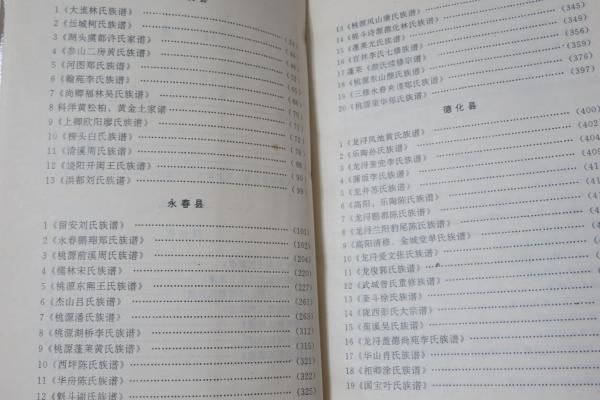 1《大逨林氏族谱》
2《丝城柯氏族谱》
3《湖头虞都许氏家谱》
4《参山二房黄氏族谱》
5《河图郑氏族谱》
6《翰苑李氏族谱》
7《尚卿福林吴氏族谱》
8 科洋黄松柏、黄金土家谱
9《上卿欧阳廖氏族谱》(71)
10《榜头白氏族谱》(72)
11《清溪周氏族谱》(78)
12《浇阳开闽王氏族谱》(90)
13《洪都刘氏族谱》(99)
永春县
1《留安刘氏族谱》(101)
2《永春鹏翔郑氏族谱》(102)
3《桃源前溪周氏族谱》(204)
4《儒林宋氏族谱》(220)
5《桃源东熊王氏族谱》(227)
6《杰山吕氏族谱》(261)
7《桃源潘氏族谱》(263)
8《桃源湖桥李氏族谱》(312)
9《桃源蓬莱黄氏族谱》(315)
10《西坪陈氏族谱》(321)
11《华房陈氏族谱》(322)
12《魁斗谢氏族谱》(325)
13《桃源凤山康氏族谱》
14《魁斗诗源德化林氏族谱》(345)
15《蓬莱尤氏族谱》(349)
16《官林李氏七修族谱》(355)
17 蓬莱《颜氏续修宗谱》(359)
18《桃源东山颜氏族谱》(376)
19《三修永春夹漈郑氏族谱》(397)
20《桃源荣华郑氏族谱》
德化县
1《龙浔凤池黄氏族谱》(400)
2《乐陶孙氏族谱》(402)
3《龙浔奎兜李氏族谱》
4《蒲坂李氏族谱》
5《龙井苏氏族谱》
6《高阳、乐陶陈氏族谱》
7《龙浔鹏都陈氏族谱》
8《龙浔兰阳豹尾陈氏族谱》
9《高阳清修、金城堂单氏族谱》
10《龙浔爱文张氏族谱》
11《龙俊郭氏族谱》
12《武城曾氏重修族谱》
13《奎斗徐氏族谱》
14《陇西彭氏大宗谱》
15《蕉溪吴氏族谱》
16《龙浔盖德尚苑李氏族谱》
17《华山肖氏族谱》
18《相卿涂氏族谱》
19《国宝叶氏族谱》